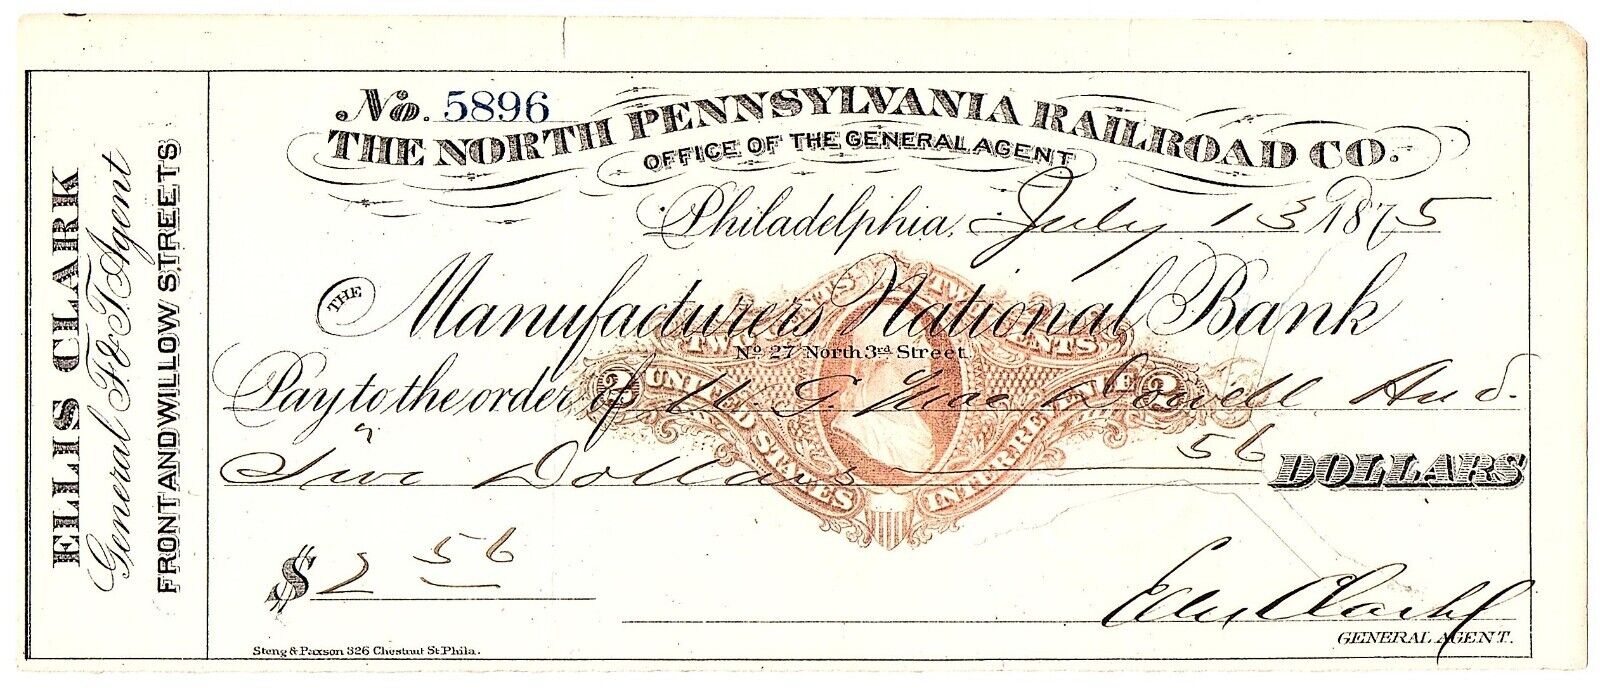 No. 5896
THE NORTH PENNSYLVANIA RAILROAD CO.
OFFICE OF THE GENERAL AGENT
Philadelphia, July 13 1875
THE Manufacturers National Bank
No 27 North 3rd Street.
Pay to the order of W. G. Mac Dowell And.
Dollars 56 DOLLARS
$ 2 56
Ellis Clark
GENERAL AGENT.
Steng & Paxson 326 Chestnut St. Phila.
ELLIS CLARK
General F. & T. Agent
FRONT AND WILLOW STREETS
TWO CENTS TWO CENTS
2 UNITED STATES INTER. REVENUE 2